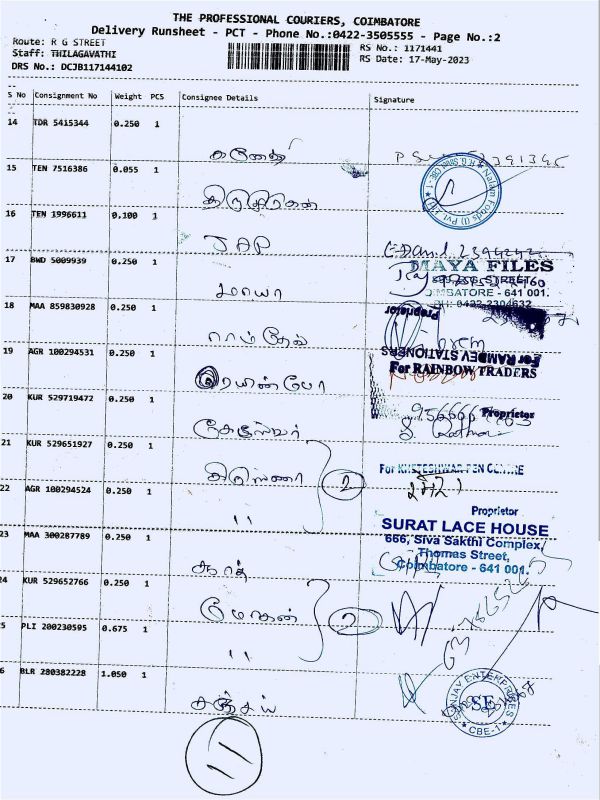 THE PROFESSIONAL COURIERS, COIMBATORE
Delivery Runsheet - PCT - Phone No.:0422-3505555 - Page No.:2
Route: R G STREET
RS No.: 1171441
Staff: THILAGAVATHI
RS Date: 17-May-2023
DRS No.: DCJB117144102
S No Consignment No Weight PCS Consignee Details Signature
14 TDR 5415344 0.250 1
கணேஷ்
15 TEN 7516386 0.055 1
16 TEN 1996611 0.100 1
JAP
17 BWD 5009939 0.250 1
MAYA FILES
STREET
COIMBATORE - 641 001.
PH: 0422 2304632
மாயா
18 MAA 859830928 0.250 1
Proprietor
ராம்தேவ்
For RAMDEV STATIONERS
19 AGR 100294531 0.250 1
For RAINBOW TRADERS
ரெயின்போ
20 KUR 529719472 0.250 1
Proprietor
21 KUR 529651927 0.250 1
கிருஸ்ணா
2
For KHETESHWAR PEN CENTRE
22 AGR 100294524 0.250 1
"
Proprietor
SURAT LACE HOUSE
666, Siva Sakthi Complex,
Thomas Street,
Coimbatore - 641 001.
23 MAA 300287789 0.250 1
24 KUR 529652766 0.250 1
மோகன்
2
5 PLI 200230595 0.675 1
"
6 BLR 280382228 1.050 1
SANJAY ENTERPRISES
SE
CBE-1
சஞ்சய்
11